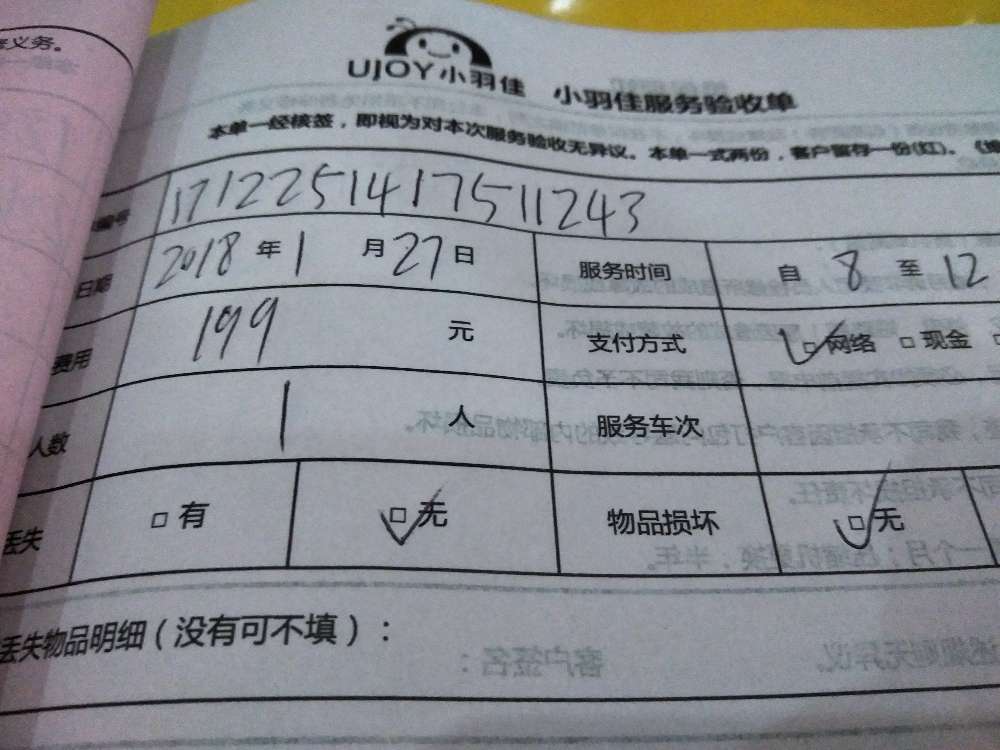 义务。
UJOY小羽佳 小羽佳服务验收单
本单一经核签，即视为对本次服务验收无异议。本单一式两份，客户留存一份(红)。
编号 171225141751 1243
日期 2018 年 1 月 27 日 服务时间 自 8 至 12
费用 199 元 支付方式 □网络 □现金
人数 1 人 服务车次
丢失 □有 □无 物品损坏 □无
丢失物品明细（没有可不填）：